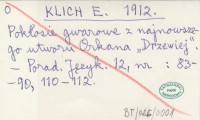 O KLICH E. 1912.
Pokłosie gwarowe z najnowsze-
go utworu Orkana „Drzewiej".
– Porad. Język. 12, nr : 83-
-90, 110-112.
BT/026/0001